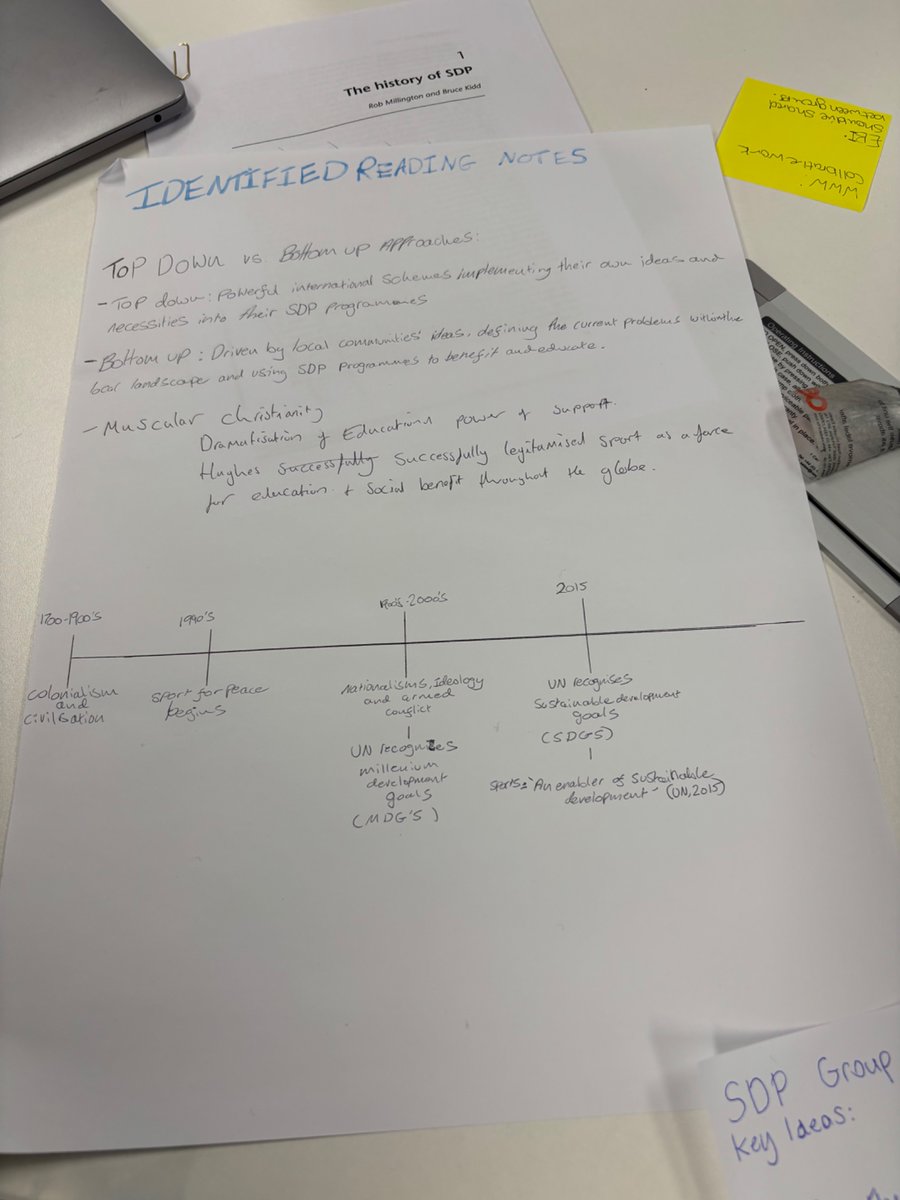 1
The history of SDP
Rob Millington and Bruce Kidd
WWW:
Collbrative work
EBI:
between groups.
IDENTIFIED READING NOTES
TOP DOWN vs. Bottom up Approaches:
- Top down: Powerful international schemes implementing their own ideas and
necessities into their SDP programmes
- Bottom up: Driven by local communities' ideas, defining the current problems within the
landscape and using SDP Programmes to benefit and educate.
- Muscular christianity
Dramatisation of Educations power of support.
Hughes Successfully Successfully legitamised sport as a force
for education + Social benefit throughout the globe.
1700-1900's
colonialism
and
civilisation
1990's
sport for peace
begins
1900's-2000's
Nationalisms, Ideology
and armed
conflict
UN recognizes
millenium
development
goals
(MDG'S)
2015
UN recognises
Sustainable development
goals
(SDGS)
Sports: "An enabler of sustainable
development" (UN, 2015)
Operating Instructions
SDP Group
key Ideas: